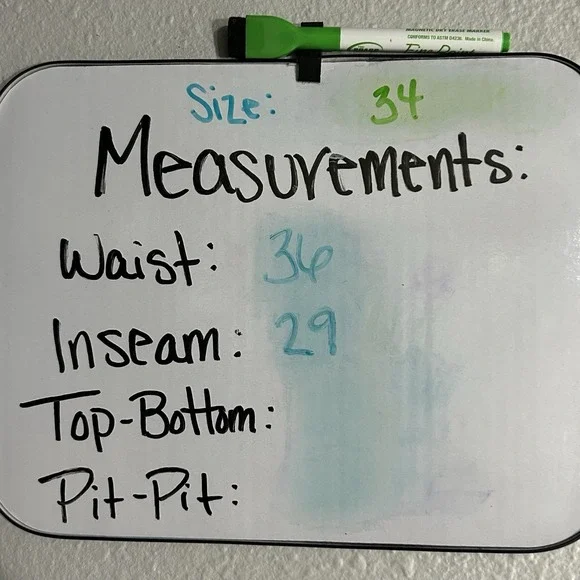 MAGNETIC DRY ERASE MARKER
CONFORMS TO ASTM D4236. Made in China.
EXPO Fine Point
Size: 34
Measurements:
Waist: 36
Inseam: 29
Top-Bottom:
Pit-Pit: